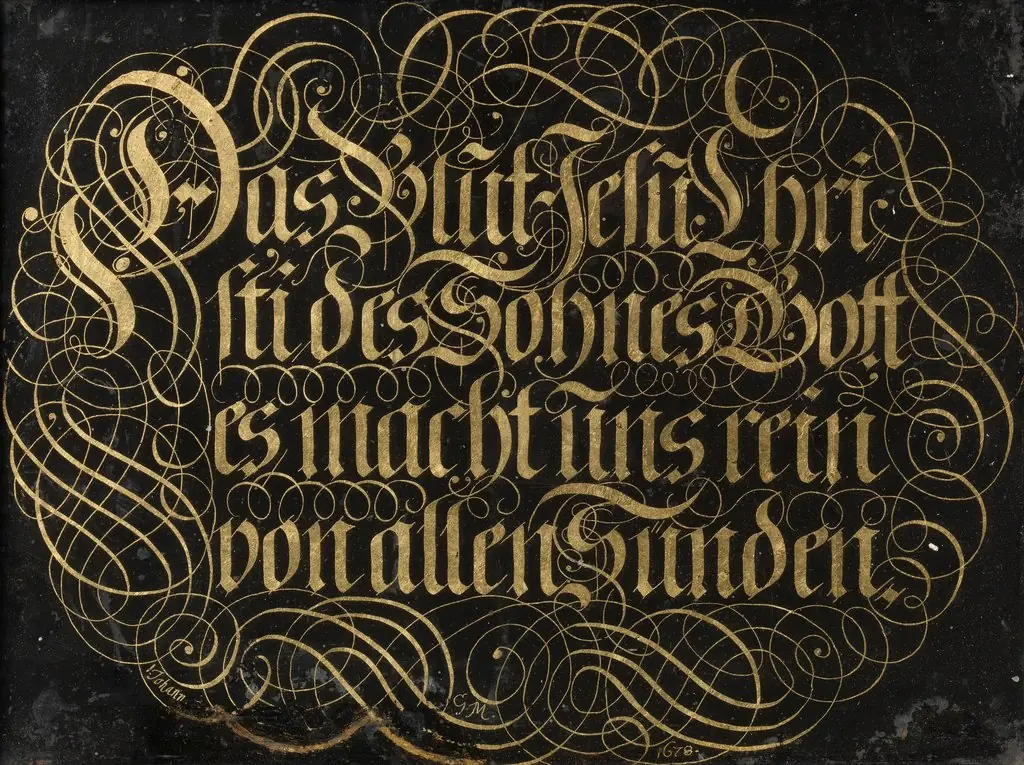 Das Blut Jesu Chri-
sti des Sohnes Gott
es macht uns rein
von allen Sünden.
1 Johann
G.M.
1678